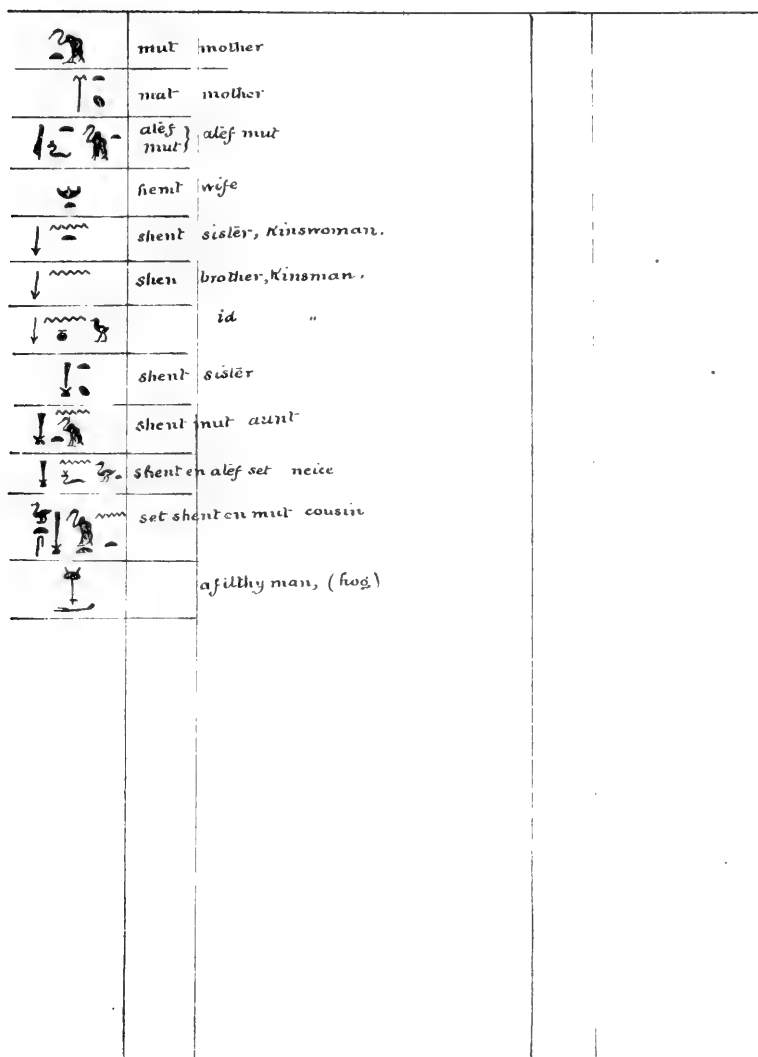 mut mother
mat mother
atēf mut} atēf mut
hemt wife
shent sistēr, Kinswoman.
shen brother, Kinsman.
id "
shent sistēr
shent mut aunt
shent en atēf set neice
set shent en mut cousin
a filthy man, (hog)